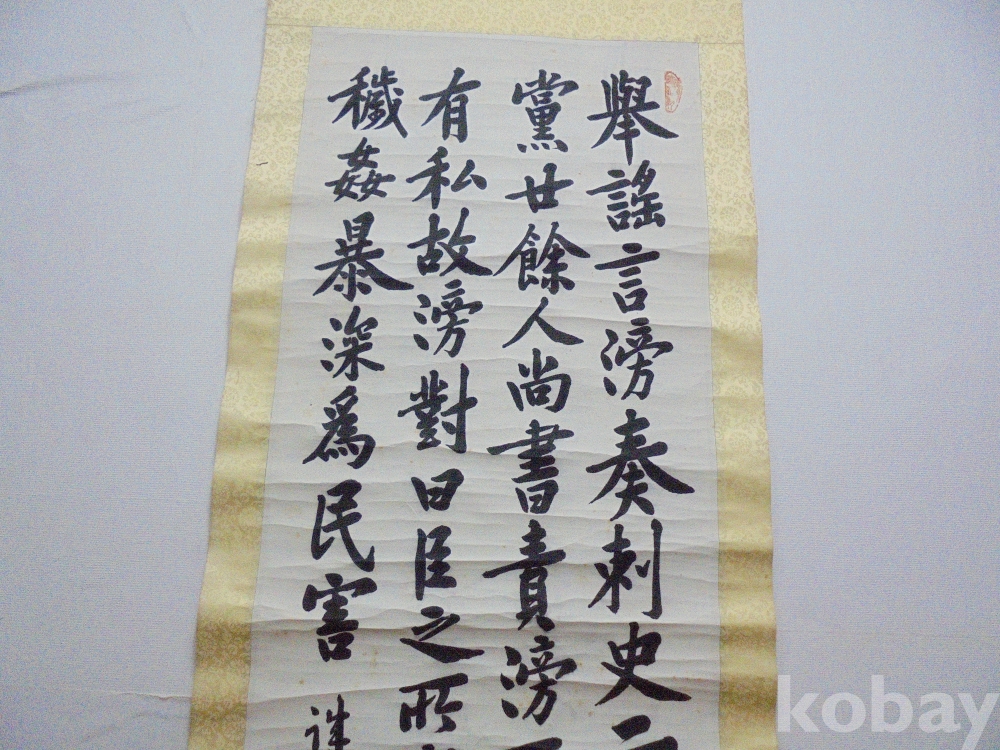 舉謠言滂奏刺史二
黨廿餘人尚書責滂
有私故滂對曰臣之所
穢姦暴深為民害
kobay